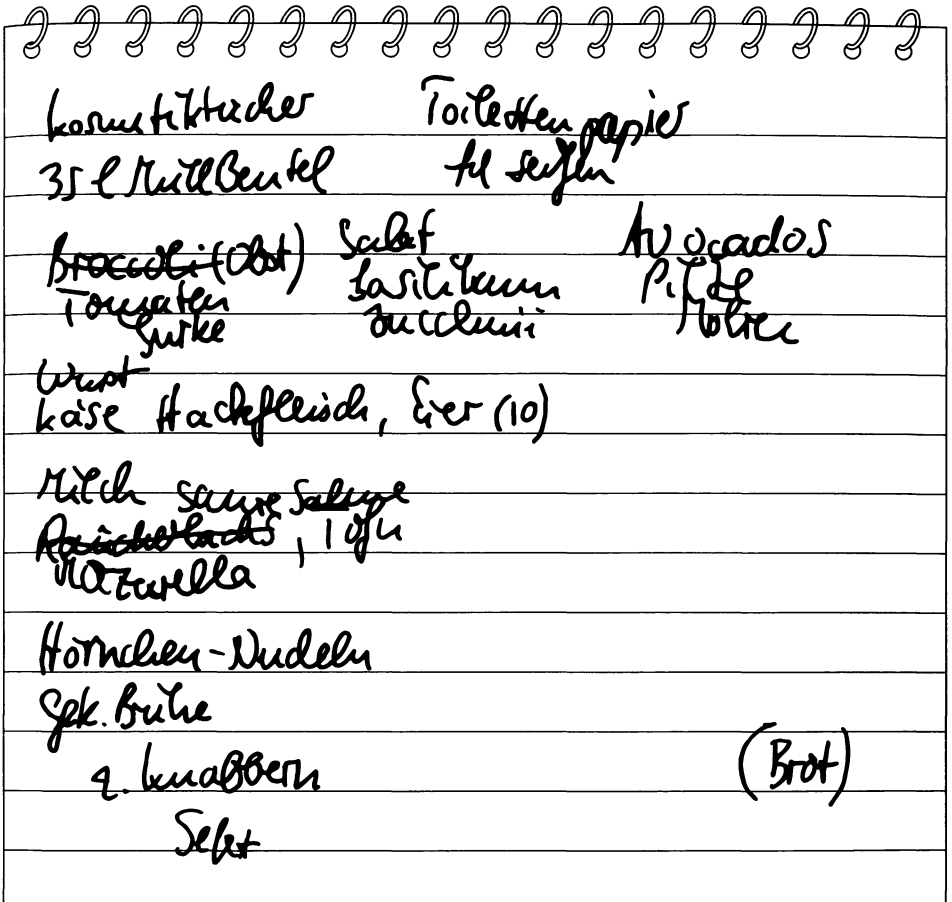 Kosmetiktücher Toilettenpapier
35 l Müllbeutel fl Seifen
Broccoli (Obst) Salat Avocados
Tomaten Basilikum Pilze
Gurke Zucchini Möhren
Wurst
Käse Hackfleisch, Eier (10)
Milch saure Sahne
Räucherlachs, Tofu
Mozarella
Hörnchen-Nudeln
Gek. Brühe
z. Knabbern (Brot)
Sekt